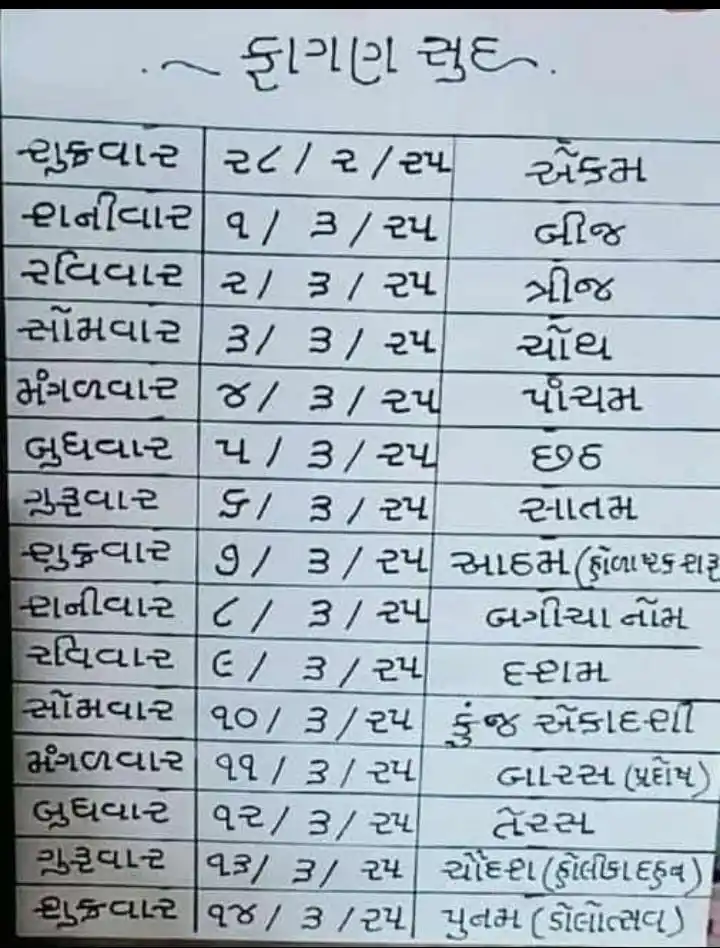 ફાગણ સુદ
શુક્રવાર ૨૮/૨/૨૫ ઍકમ
શનીવાર ૧/૩/૨૫ બીજ
રવિવાર ૨/૩/૨૫ ત્રીજ
સૉમવાર ૩/૩/૨૫ ચૉથ
મંગળવાર ૪/૩/૨૫ પાંચમ
બુધવાર ૫/૩/૨૫ છઠ
ગુરૂવાર ૬/૩/૨૫ સાતમ
શુક્રવાર ૭/૩/૨૫ આઠમ (હૉળાષ્ટક શરૂ
શનીવાર ૮/૩/૨૫ બગીચા નૉમ
રવિવાર ૯/૩/૨૫ દશમ
સૉમવાર ૧૦/૩/૨૫ કુંજ ઍકાદશી
મંગળવાર ૧૧/૩/૨૫ બારસ (પ્રદૉષ)
બુધવાર ૧૨/૩/૨૫ તૅરસ
ગુરૂવાર ૧૩/૩/૨૫ ચૌદશ (હૉલીકા દહન)
શુક્રવાર ૧૪/૩/૨૫ પુનમ (ડૉલૉત્સવ)